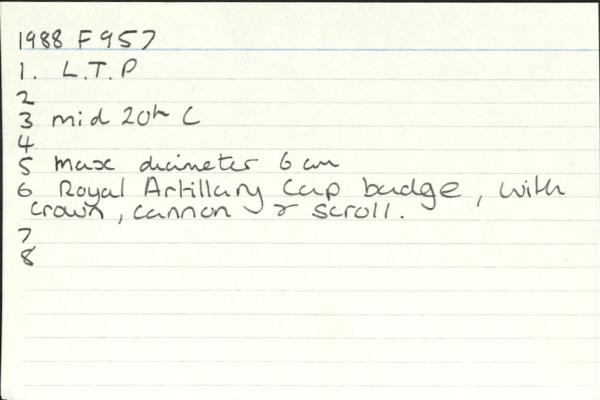 1988 F957
1. L.T.P
2
3 mid 20th C
4
5 Max diameter 6 cm
6 Royal Artillary Cap badge, with
crown, cannon & scroll.
7
8